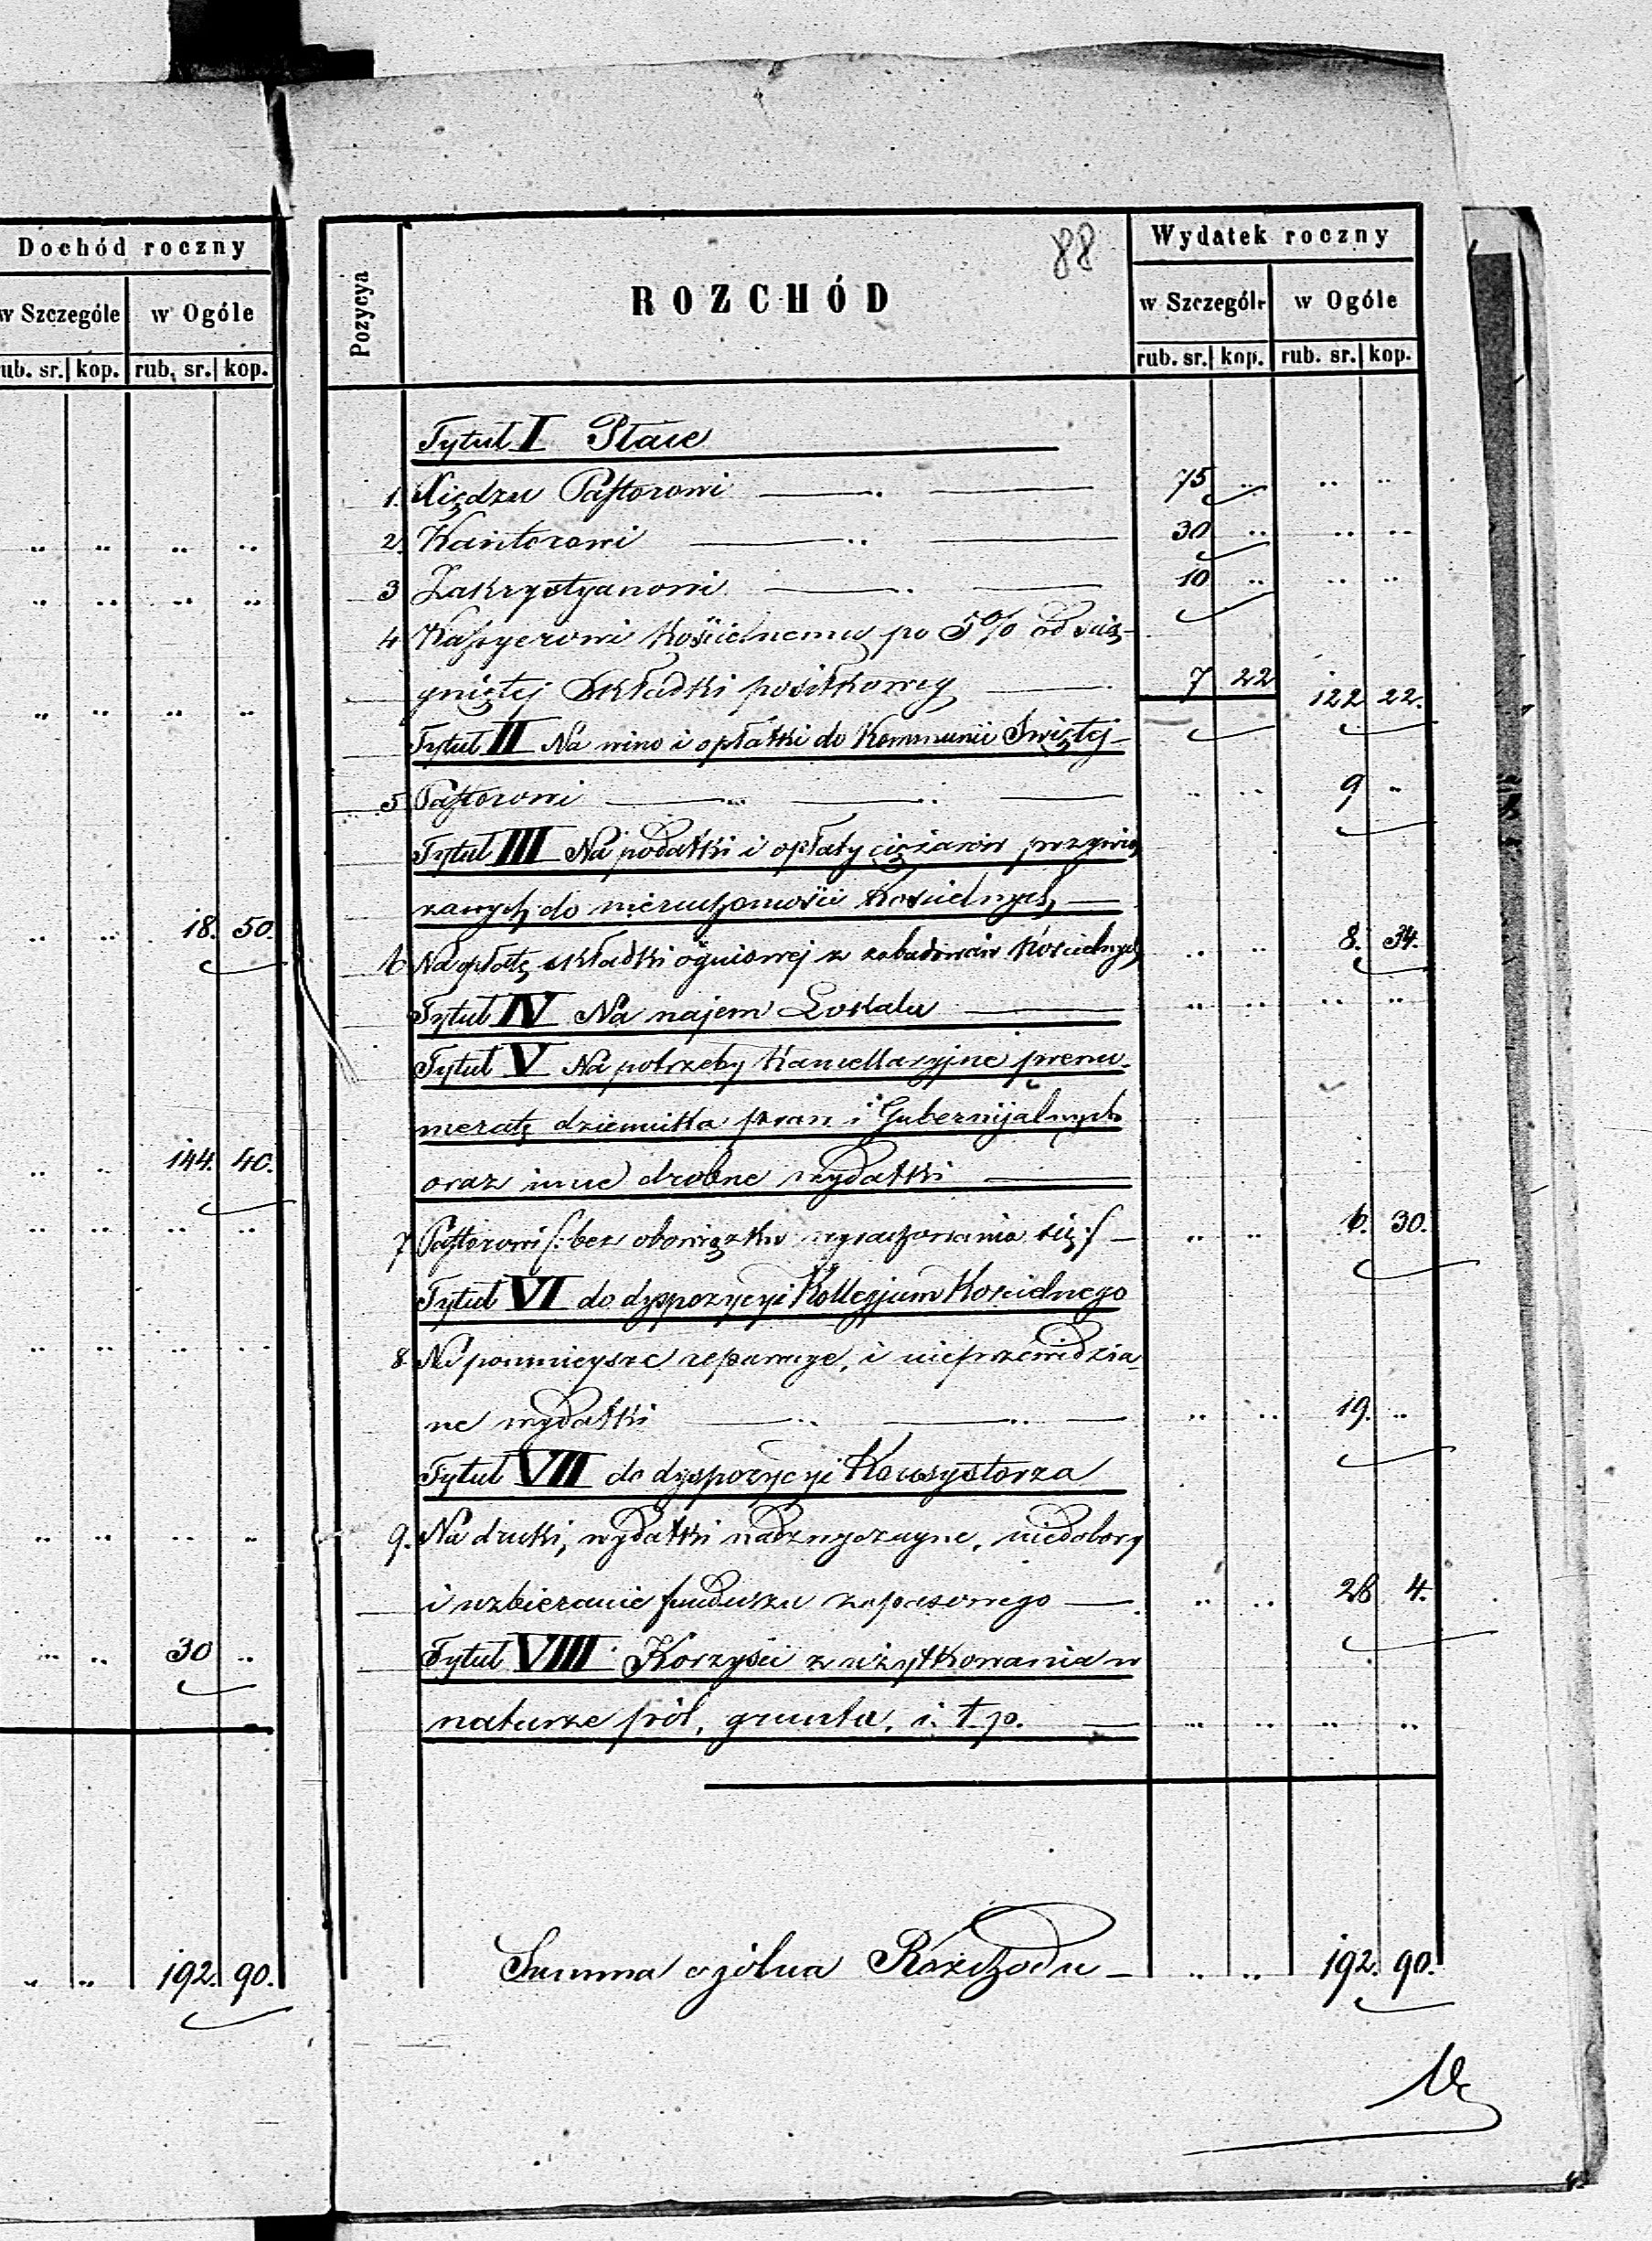 Dochód roczny
w Szczególe w Ogóle
rub. sr. kop. rub. sr. kop.
18. 50.
144. 40.
30 ..
192. 90.
88
Pozycya ROZCHÓD Wydatek roczny
w Szczególe w Ogóle
rub. sr. kop. rub. sr. kop.
Tytuł I Płace
1. Xiędzu Pastorowi 75 .. .. ..
2. Kantorowi 30 .. .. ..
3 Zakrystyanowi 10 .. .. ..
4 Kassyerowi Kościelnemu po 5% od ścią-
gniętej Składki posiłkowey 7 22 122 22.
Tytuł II Na wino i opłatki do Kommunii Swiętej
5 Pastorowi .. .. 9 ..
Tytuł III Na podatki i opłaty ciężarów przywią
zanych do nieruchomości Kościelnych
6 Na opłatę składki ogniowej z zabudowań Kościelnych .. .. 8. 34.
Tytuł IV Na najem Lokalu .. .. .. ..
Tytuł V Na potrzeby Kancellaryjne prenu-
meratę dziennika praw i Gubernijalnych
oraz inne drobne wydatki
7 Pastorowi /: bez obowiązku wyrachowania się :/ .. .. 6. 30.
Tytuł VI do dyspozycyi Kollegjum Kościelnego
8 Na pomnieysze reparacye, i nieprzewidzia-
ne wydatki .. .. 19. ..
Tytuł VII do dyspozycyi Konsystorza
9. Na druki, wydatki nadzwyczayne, niedobory
i uzbieranie funduszu zapasowego .. .. 28 4.
Tytuł VIII Korzyści z użytkowania w
naturze pól, gruntu, i. t. p. .. .. .. ..
Summa ogólna Rozchodu .. .. 192. 90.